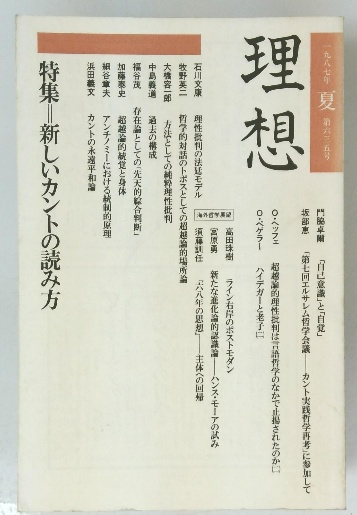 一九八七年 夏 第六三五号
理想
門脇卓爾 「自己意識」と「自覚」
坂部恵 「第七回エルサレム哲学会議――カント実践哲学再考」に参加して
O・ヘッフェ 超越論的理性批判は言語哲学のなかで止揚されたのか[一]
O・ペゲラー ハイデガーと老子[二]
海外哲学展望
高田珠樹 ライン右岸のポストモダン
宮原勇 新たな進化論的認識論――ハンス・モーアの試み
須藤訓任 「六八年の思想」――主体への回帰
石川文康 理性批判の法廷モデル
牧野英二 哲学的対話のトポスとしての超越論的場所論
大橋容一郎 方法としての純粋理性批判
中島義道 過去の構成
福谷茂 存在論としての「先天的綜合判断」
加藤泰史 超越論的統覚と身体
細谷章夫 アンチノミーにおける統制的原理
浜田義文 カントの永遠平和論
特集=新しいカントの読み方